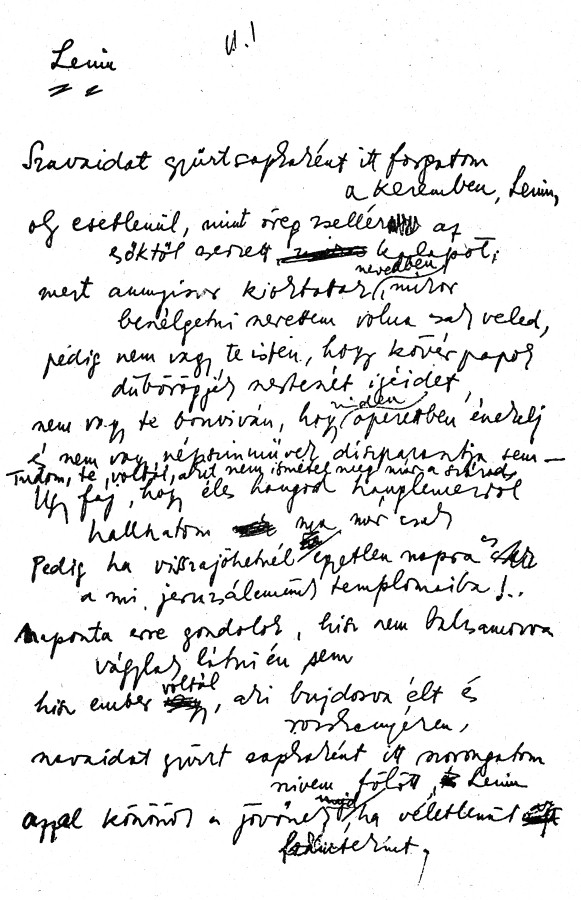 Lenin
Szavaidat gyürt sapkaként itt forgatom
a kezemben, Lenin,
oly esetlenül, mint öreg zsellér az
szerzett kalapot;
mert annyiszor kioktattak nevedben, mikor
beszélgetni szerettem volna csak veled,
pedig nem vagy te isten, hogy kövér papok
dübörögjék szerteszét igéidet,
nem vagy te bonviván, hogy operettben énekelj
s nem vagy népszinművek diszparasztja sem —
Tudom, te voltál, akit nem ismétel meg már a század
Ugy fáj, hogy éles hangod hanglemezről
hallhatom ma már csak
Pedig ha visszajöhetnél egyetlen napra
a mi jeruzsálemünk templomaiba!..
Naponta erre gondolok, hisz nem balzsamozva
vágylak látni én sem
hisz ember voltál, aki bujdosva élt és
rozskenyéren,
szavaidat gyürt sapkaként itt szorongatom
szivem fölött, Lenin
azzal köszönök a jövőnek majd, ha véletlenül